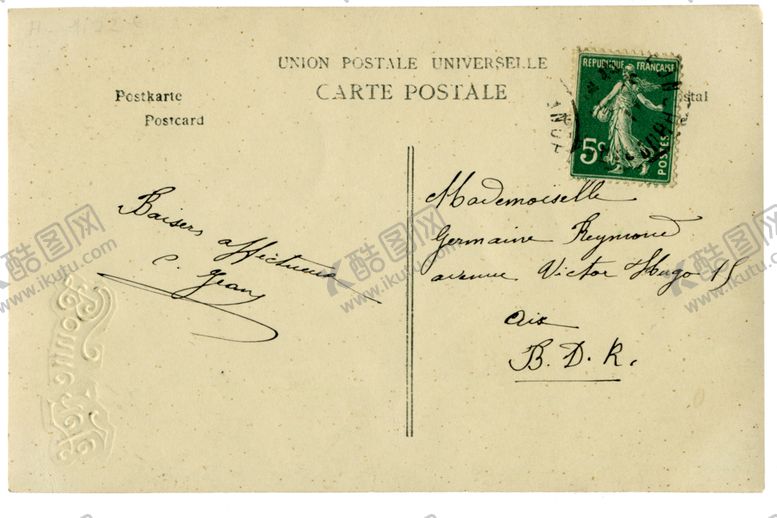 UNION POSTALE UNIVERSELLE
CARTE POSTALE
Postkarte
Postcard
REPUBLIQUE FRANÇAISE
5c
POSTES
Baisers affectueux
Mademoiselle
Germaine Reymond
avenue Victor Hugo 15
Aix
B. D. R.
酷图网
www.ikutu.com